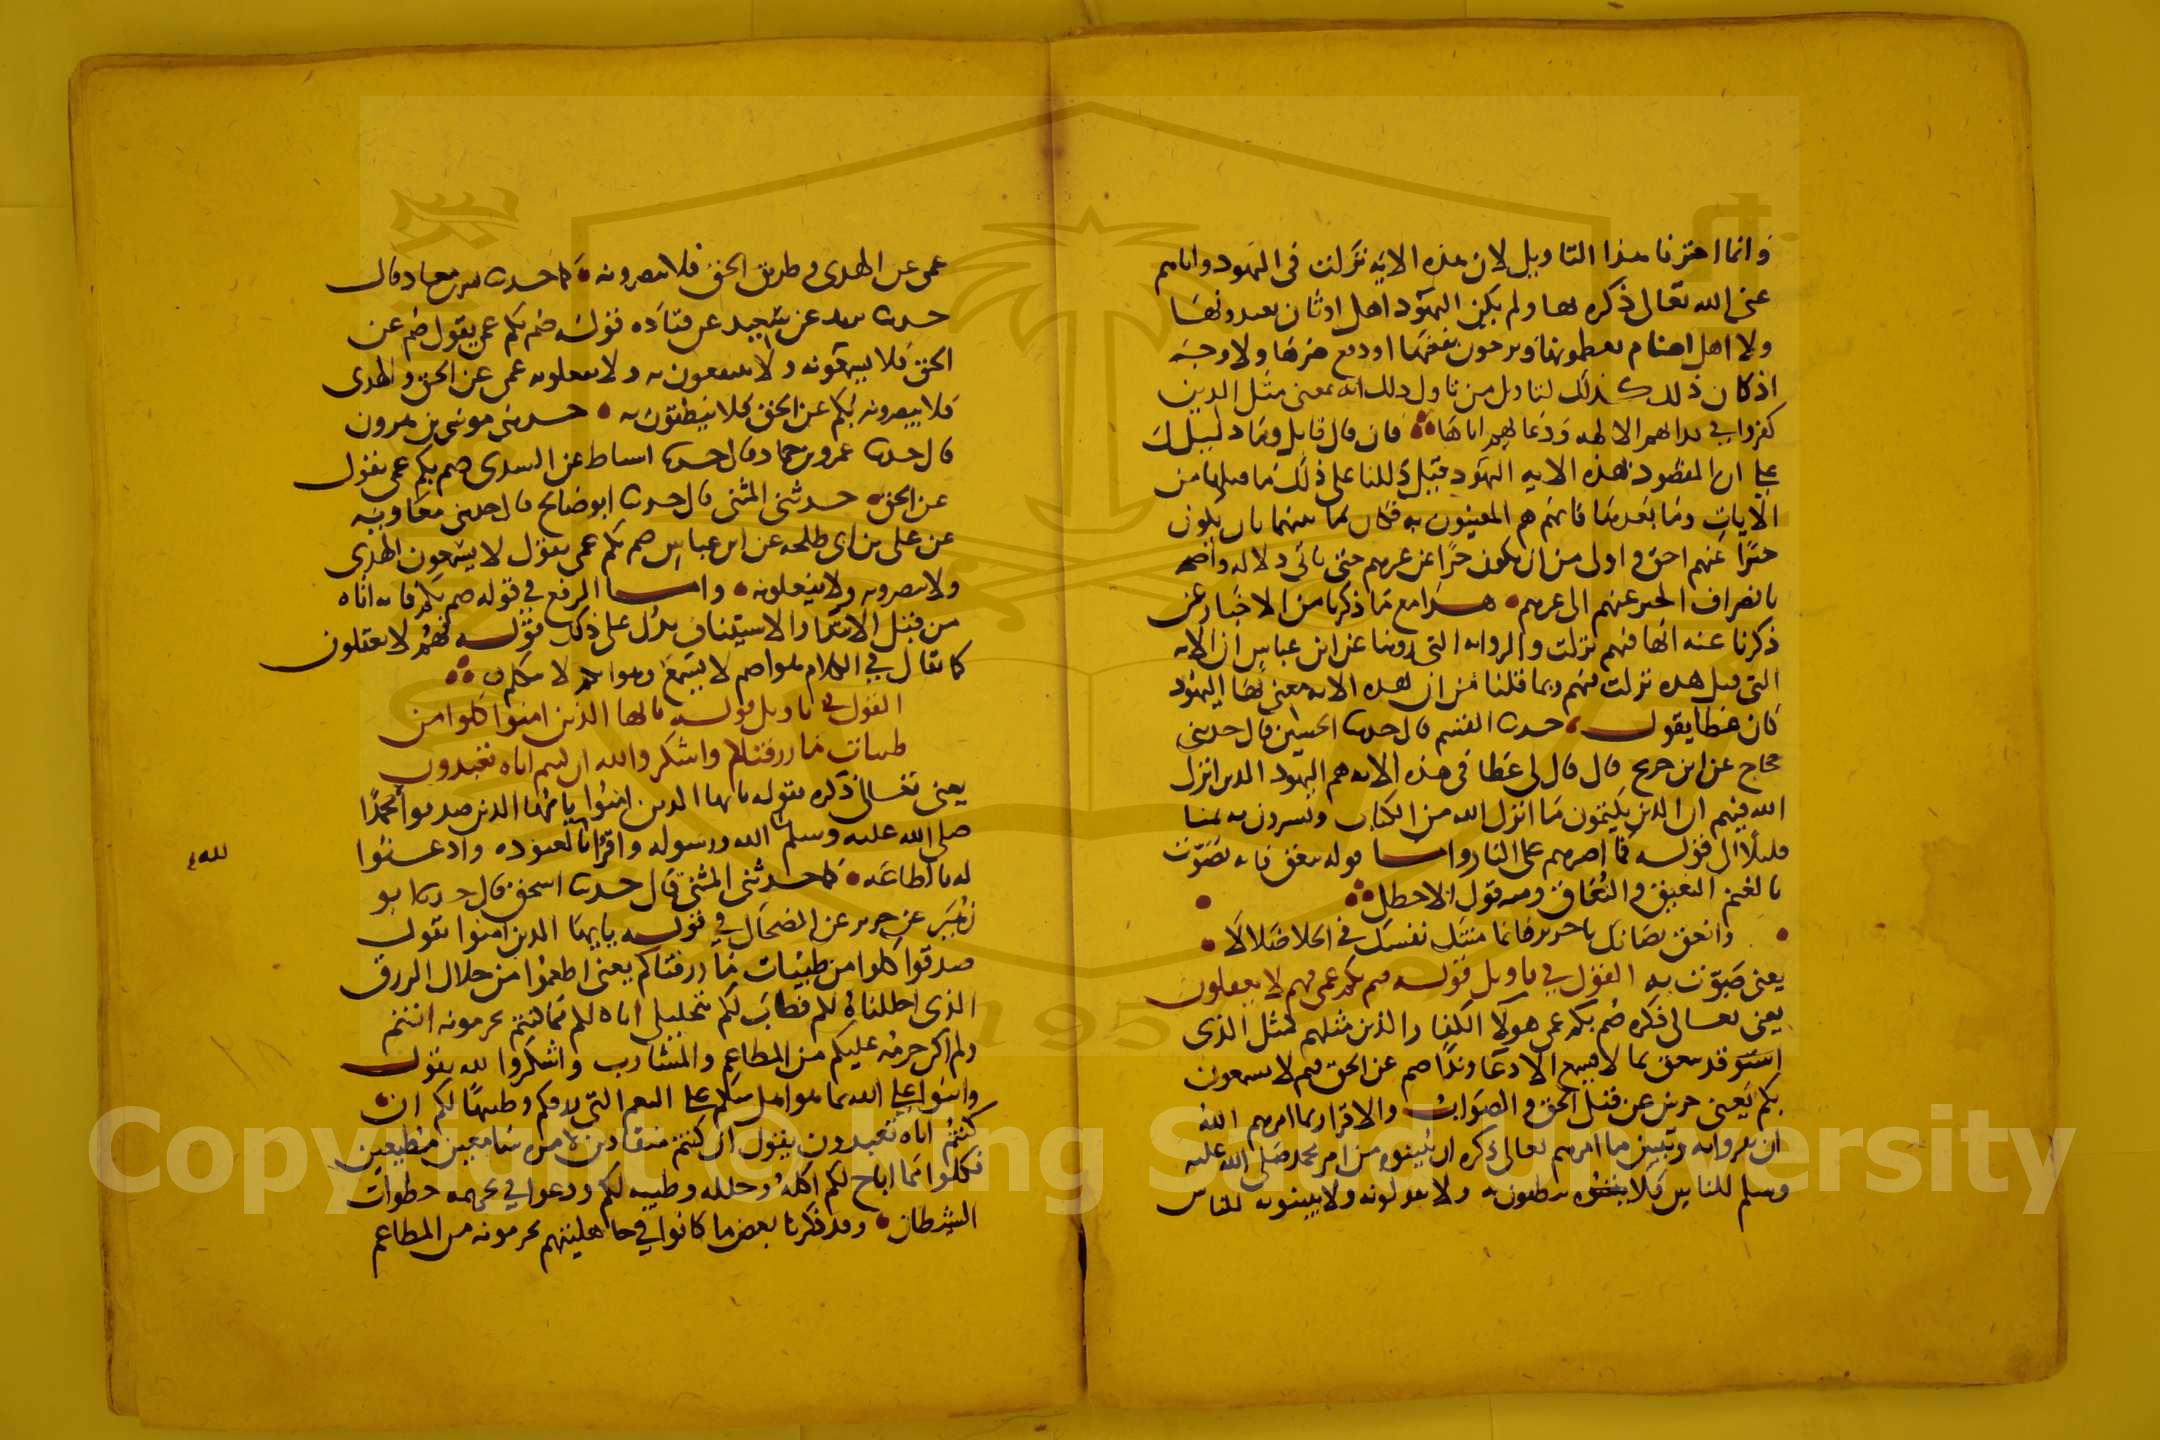 وانما اخترنا هذا التاويل لان هذه الاية نزلت في اليهود واياهم
عنى الله تعالى ذكره بها ولم يكن اليهود اهل اوثان يعبدونها
ولا اهل اصنام يعظمونها ويرجون نفعها او دفع ضرها ولا وجه
اذ كان ذلك كذلك لتاويل من تاول ذلك انه بمعنى مثل الذين
كفروا في نداهم الالهة ودعاهم اياها فان قال قايل وما دليلك
على ان المقصود بهذه الاية اليهود قيل دللنا على ذلك ما قبلها من
الايات وما بعدها فانهم هم المعنيون به فكان ما بينهما بان يكون
خبرا عنهم احق واولى من ان يكون خبرا عن غيرهم حتى تاتي دلالة واضحة
بانصراف الخبر عنهم الى غيرهم هذا مع ما ذكرنا من الاخبار عن
ذكرنا عنه انها فيهم نزلت والرواية التي روينا عن ابن عباس ان الاية
التي قبل هذه نزلت فيهم وبما قلنا من ان هذه الاية معنى بها اليهود
كان عطا يقول حدثنا القسم قال حدثنا الحسين قال حدثني
حجاج عن ابن جريج قال قال لي عطا في هذه الاية هم اليهود الذين انزل
الله فيهم ان الذين يكتمون ما انزل الله من الكتاب ويشترون به ثمنا
قليلا الى قوله فما اصبرهم على النار واما قوله ينعق فانه يصوت
بالغنم النعيق والنعاق ومنه قول الاخطل
وانعق بضانك يا جرير فانما منتك نفسك في الخلا ضلالا
يعني صوت به القول في تاويل قوله صم بكم عمي فهم لا يعقلون
يعني تعالى ذكره صم بكم عمي هولا الكفار الذين مثلهم كمثل الذي
ينعق بما لا يسمع الا دعا وندا صم عن الحق فهم لا يسمعون
بكم يعني خرس عن قيل الحق والصواب والاقرار بما امرهم الله
ان يقروا به وتبيين ما امرهم تعالى ذكره ان يبينوه من امر محمد صلى الله عليه
وسلم للناس فلا ينطقون به ولا يقولونه ولا يبينونه للناس
عمي عن الهدى وطريق الحق فلا يبصرونه كما حدثنا بشر بن معاذ قال
حدثنا يزيد عن سعيد عن قتادة قوله صم بكم عمي يقول صم عن
الحق فلا يسمعونه ولا ينتفعون به ولا يعقلونه عمي عن الحق والهدى
فلا يبصرونه بكم عن الحق فلا ينطقون به حدثني موسى بن هرون
قال حدثنا عمرو بن حماد قال حدثنا اسباط عن السدي صم بكم عمي يقول
عن الحق حدثني المثنى قال حدثنا ابو صالح قال حدثني معاوية
عن علي بن ابي طلحة عن ابن عباس صم بكم عمي يقول لا يسمعون الهدى
ولا يبصرونه ولا يعقلونه واما الرفع في قوله صم بكم فانه اتاه
من قبل الابتدا والاستيناف يدل على ذلك قوله فهم لا يعقلون
كما يقال في الكلام هو اصم لا يسمع وهو ابكم لا يتكلم
القول في تاويل قوله يايها الذين امنوا كلوا من
طيبات ما رزقناكم واشكروا لله ان كنتم اياه تعبدون
يعني تعالى ذكره بقوله يايها الذين امنوا يايها الذين صدقوا محمدا
صلى الله عليه وسلم الله ورسوله واقروا بالعبودة واذعنوا
له بالطاعة كما حدثني المثنى قال حدثنا اسحق قال حدثنا ابو
زهير عن جويبر عن الضحاك في قوله يايها الذين امنوا يقول
صدقوا كلوا من طيبات ما رزقناكم يعني اطعموا من حلال الرزق
الذي احللناه لكم فطاب لكم بتحليلي اياه لكم مما كنتم تحرمونه انتم
ولم اكن حرمته عليكم من المطاعم والمشارب واشكروا لله يقول
واثنوا على الله بما هو اهله منكم على النعم التي رزقكم وطيبها لكم ان
كنتم اياه تعبدون يقول ان كنتم منقادين لامره سامعين مطيعين
فكلوا مما اباح لكم اكله وحلله وطيبه لكم ودعوا في تحريمه خطوات
الشيطان وقد ذكرنا بعض ما كانوا في جاهليتهم يحرمونه من المطاعم
Copyright © King Saud University